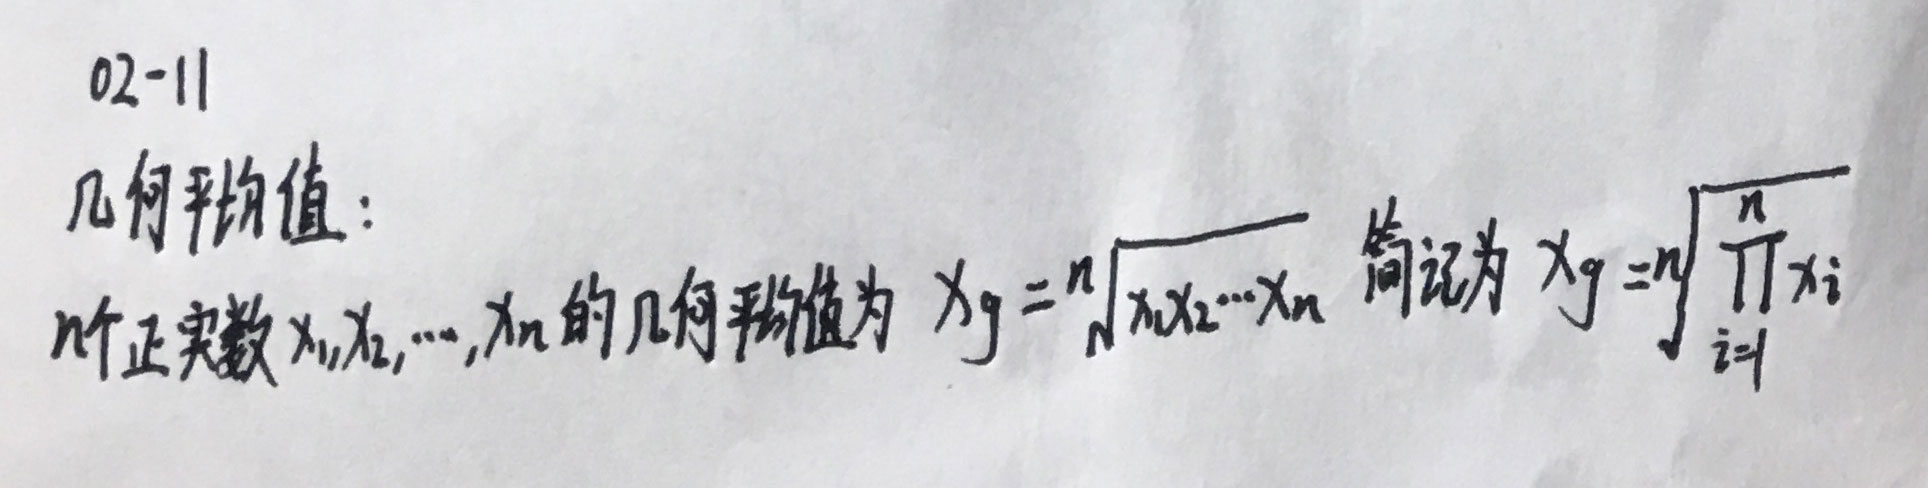 02-11
几何平均值:
n个正实数 $x_1, x_2, \cdots, x_n$ 的几何平均值为 $x_g = \sqrt[n]{x_1 x_2 \cdots x_n}$ 简记为 $x_g = \sqrt[n]{\prod_{i=1}^{n} x_i}$